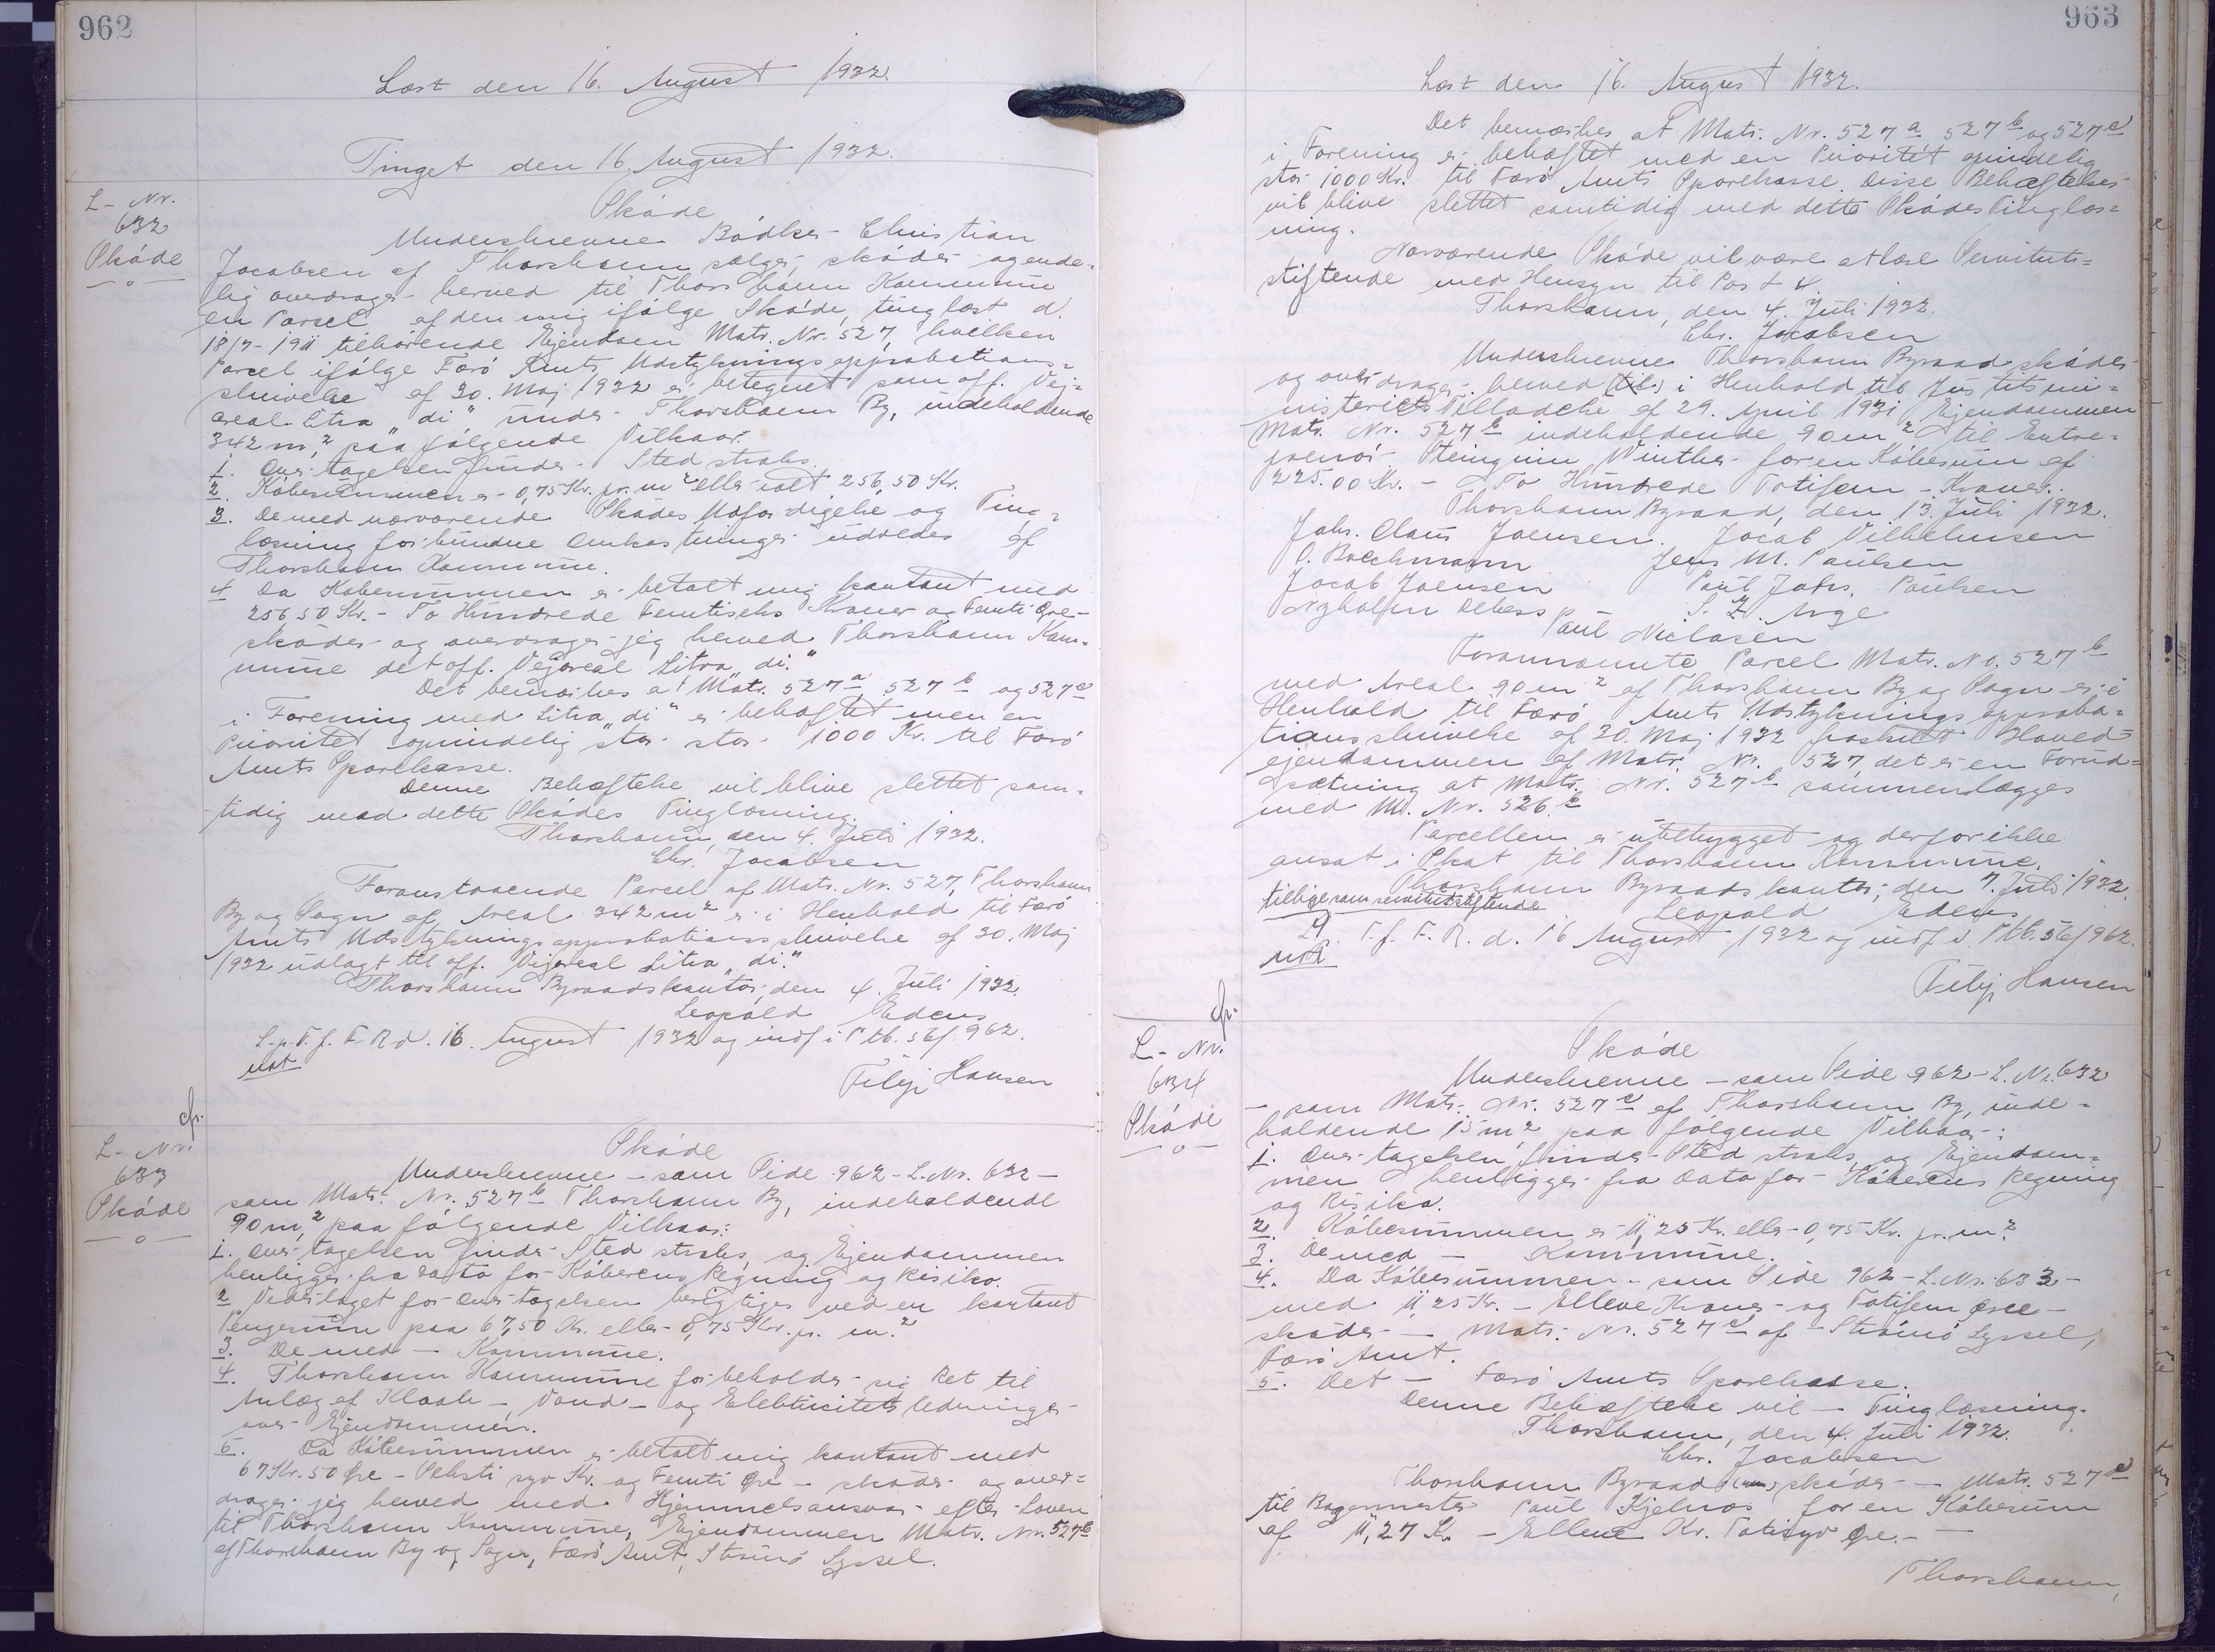 962
Læst den 16. August 1932.
Tinget den 16. August 1932.
L-Nr.
632
Skøde
Skøde
Underskrevne Bødker Christian
Jacobsen af Thorshavn sælger, skøder og ende-
lig overdrager herved til Thorshavn Kommune
en Parcel af den mig ifølge Skøde, tinglæst d.
18/7-1911 tilhørende Ejendom Matr. Nr. 527, hvilken
Parcel ifølge Færø Amts Udstykningsapprobations-
skrivelse af 30. Maj 1932 er betegnet som off. Vej-
areal Litra "di" under Thorshavn By, indeholdende
342 m², paa følgende Vilkaar:
1. Overtagelsen finder Sted straks.
2. Købesummen er 0,75 Kr. pr. m² eller ialt 256,50 Kr.
3. De med nærværende Skødes Udfærdigelse og Ting-
læsning forbundne Omkostninger udredes af
Thorshavn Kommune.
4. Da Købesummen er betalt mig kontant med
256,50 Kr. - To Hundrede Femtiseks Kroner og Femti Øre -
skøder og overdrager jeg herved Thorshavn Kom-
mune det off. Vejareal Litra "di."
Det bemærkes at Matr. 527a 527b og 527c
i Forening med Litra "di" er behæftet men en
Prioritet oprindelig stor stor 1000 Kr. til Færø
Amts Sparekasse.
Denne Behæftelse vil blive slettet sam-
tidig med dette Skødes Tinglæsning.
Thorshavn, den 4. Juli 1932.
Chr. Jacobsen
Foranstaaende Parcel af Matr. Nr. 527, Thorshavn
By og Sogn af Areal 342 m² er i Henhold til Færø
Amts Udstykningsapprobationsskrivelse af 30. Maj
1932 udlagt til off. Vejareal Litra "di."
Thorshavn Byraadskontor, den 4. Juli 1932.
Leopold Edens
L. p. T. f. F. R. d. 16. August 1932 og indf i Ptb. 56/962.
Filip Hansen
cfr.
L-Nr.
633
Skøde
Skøde
Underskrevne - som Side 962-L.Nr. 632 -
som Matr. Nr. 527b Thorshavn By, indeholdende
90 m², paa følgende Vilkaar:
1. Overtagelsen finder Sted straks, og Ejendommen
henligger fra Dato for Køberens Regning og Risiko.
2. Vederlaget for Overtagelsen berigtiges ved en kontant
Pengesum paa 67,50 Kr. eller 0,75 Kr. pr. m.²
3. De med - Kommune.
4. Thorshavn Kommune forbeholder sig Ret til
Anlæg af Kloak- Vand- og Elektricitetsledninger
over Ejendommen.
5. Da Købesummen er betalt mig kontant med
67 Kr. 50 Øre - Seksti syv Kr. og Femti Øre - skøder og over-
drager jeg herved med Hjemmelsansvar efter Loven
til Thorshavn Kommune, Ejendommen Matr. Nr. 527b
af Thorshavn By og Sogn, Færø Amt, Strømø Syssel.
963
Læst den 16. August 1932.
Det bemærkes at Matr. Nr. 527a 527b og 527c
i Forening er behæftet med en Prioritet oprindelig
stor 1000 Kr. til Færø Amts Sparekasse. Disse Behæftelser
vil blive slettet samtidig med dette Skødes Tinglæs-
ning.
Nærværende Skøde vil være at læse Servituts-
stiftende med Hensyn til Post 4.
Thorshavn, den 4. Juli 1932.
Chr. Jacobsen
Underskrevne Thorshavn Byraad skøder
og overdrager herved (til) i Henhold til Justitsmi-
nisteriets Tilladelse af 29. April 1931 Ejendommen
Matr. Nr. 527b indeholdende 90 m² til Entre-
prenør Steingrim Winther for en Købesum af
225.00 Kr. - To Hundrede Totifem - Kroner.
Thorshavn Byraad, den 13. Juli 1932.
Johs. Claus Joensen. Jacob Vilhelmsen
Jens M. Paulsen
Jacob Joensen Paul Johs. Paulsen
Arge
Paul Niclasen
Forannævnte Parcel Matr. No. 527b
med Areal 90 m² af Thorshavn By og Sogn er i
Henhold til Færø Amts Udstykningsapproba-
tionsskrivelse af 30. Maj 1932 fraskilt Hoved-
ejendommen af Matr. Nr. 527, det er en Forud-
sætning at Matr. Nr. 527b sammenlægges
med M. Nr. 526b
Parcellen er ubebygget og derfor ikke
ansat i Skat til Thorshavn Kommune.
Thorshavn Byraadskontor, den 7. Juli 1932.
tillige som servitutstiftende
Leopold Edens
T. f. F. R. d. 16 August 1932 og indf i Ptb. 56/962.
Filip Hansen
cfr.
L-Nr.
634
Skøde
Skøde
Underskrevne - som Side 962-L.Nr. 632
- som Matr. Nr. 527c af Thorshavn By, inde-
holdende 15 m² paa følgende Vilkaar:
1. Overtagelsen finder Sted straks, og Ejendom-
men henligger fra Dato for Køberens Regning
og Risiko.
2. Købesummen er 11,25 Kr. eller 0,75 Kr. pr. m.²
3. De med - Kommune.
4. Da Købesummen - som Side 962-L.Nr. 633 -
med 11,25 Kr. - Elleve Kroner og Totifem Øre -
skøder - Matr. Nr. 527c af - Strømø Syssel,
Færø Amt.
5. Det - Færø Amts Sparekasse.
Denne Behæftelse vil - Tinglæsning.
Thorshavn, den 4. Juli 1932.
Chr. Jacobsen
Thorshavn Byraad skøder - Matr. 527c
til Bagermester Paul Kjelnæs for en Købesum
af 11,27 Kr. - Elleve Kr. Totisyv Øre. -
Thorshavn,